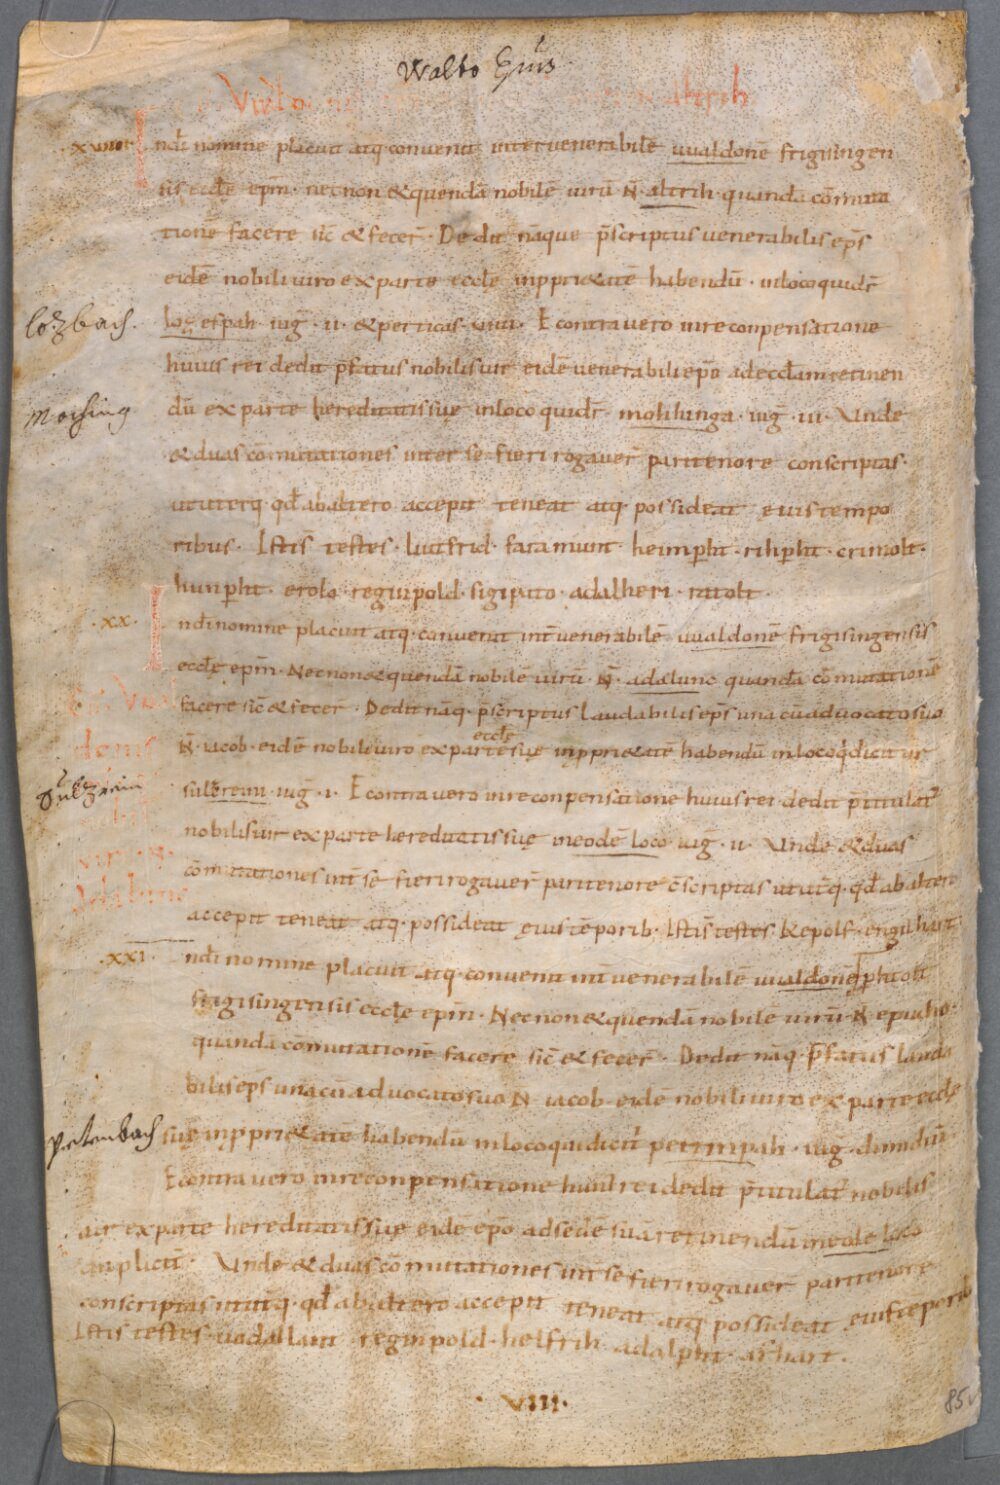 Walto Epūs
Walto altrih
·xviiii· Indi nomine placuit atq· convenit inter venerabilē uualdonē frigisingen
sis eccłę epm̄· nec non & quendā nobilē virū N̄· altrih· quandā cōmuta
tionē facere sic̄ & fecer̄· Dedit nāque p̄scriptus venerabilis ep̄s
eidē nobili viro ex parte eccłę inpprietatē habendū· in loco qui dr̄
Lozbach.
lozespah· iuḡ· ii· & perticas· viiii· E contra vero in reconpensatione
huius rei dedit p̄fatus nobilis vir eidē venerabili ep̄o ad eccłam retinen
Moching
dū ex parte hereditatis suę in loco qui dr̄ mohhinga· iuḡ· iii· Unde
& duas cōmutationes inter se fieri rogaver̄ pari tenore conscriptas·
ut uterq· qd̄ ab altero accepit teneat atq· possideat evis tempo
ribus· Isti s̄ testes· liutfrid· faramunt· heimpht· rihpht· crimolt·
hunpht· erolo· reginpold· sigipato· adalheri· ratolt·
·xx· Indi nomine placuit atq· convenit int̄ venerabilē uualdonē frigisingensis
eccłę epm̄· Nec non & quendā nobilē virū· N̄· adalunc quandā cōmutationē
facere sic̄ & fecer̄· Dedit nāq· p̄scriptus laudabilis ep̄s una cū advocato suo
eccłę
N̄· iacob· eidē nobili viro ex parte suę inpprietatē habendū in loco q̄ dicitur
Sultzrain
sulzreini· iuḡ· i· E contra vero in reconpensatione huius rei dedit p̄titulat̄
nobilis vir ex parte hæreditatis suę in eodē loco· iuḡ· ii· Unde & duas
cōmutationes int̄ se fieri rogaver̄ pari tenore c̄scriptas ut ut̄q· qd̄ ab altero
Adalunc
accepit teneat atq· possideat ęius tēporib· Isti s̄ testes· kepolf· engilhart
·xxi· ndi nomine placuit atq· convenit int̄ venerabilē uualdonē phtolt
frigisingensis eccłę epm̄· Nec non & quendā nobilē virū· N̄ epucho·
quandā cōmutationē facere sic̄ & fecer̄· Dedit nāq· p̄fatus lauda
bilis ep̄s una cū advocato suo N̄ iacob· eidē nobili viro ex parte eccłę
Petenbach
suę inpprietatē habendū in loco qui dicit̄ petinpah· iuḡ· dimidiū·
E contra vero in reconpensatione hui' rei dedit p̄titulat̄ nobilis
vir ex parte hereditatis suę eidē ep̄o ad sedē suā retinendū in eodē loco
duplicit̄· Unde & duas cōmutationes int̄ se fieri rogaver̄ pari tenore
conscriptas ut ut̄q· qd̄ ab altero accepit teneat atq· possideat eius tēporib
Isti s̄ testes· uodallant· reginpold· helfrih· adalpht· arhart·
·VIII·
85v